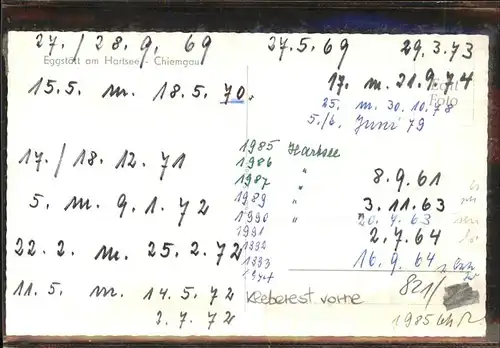 27./28.9.69
27.5.69
29.3.73
Eggstätt am Hartsee - Chiemgau
17. m. 21.9.74
Echt
Foto
15.5. m. 18.5.70.
25. m. 30.10.78
5./6. Juni 79
1985 Hartsee
17./18.12.71
1986 "
1987 "
8.9.61
5. m. 9.1.72
1989 "
3.11.63
1990 "
20.4.63
1991
2.7.64
22.2. m. 25.2.72
1992
1993
16.9.64
11.5. m. 14.5.72
Kleberest vorne
821/
2.7.72
1985